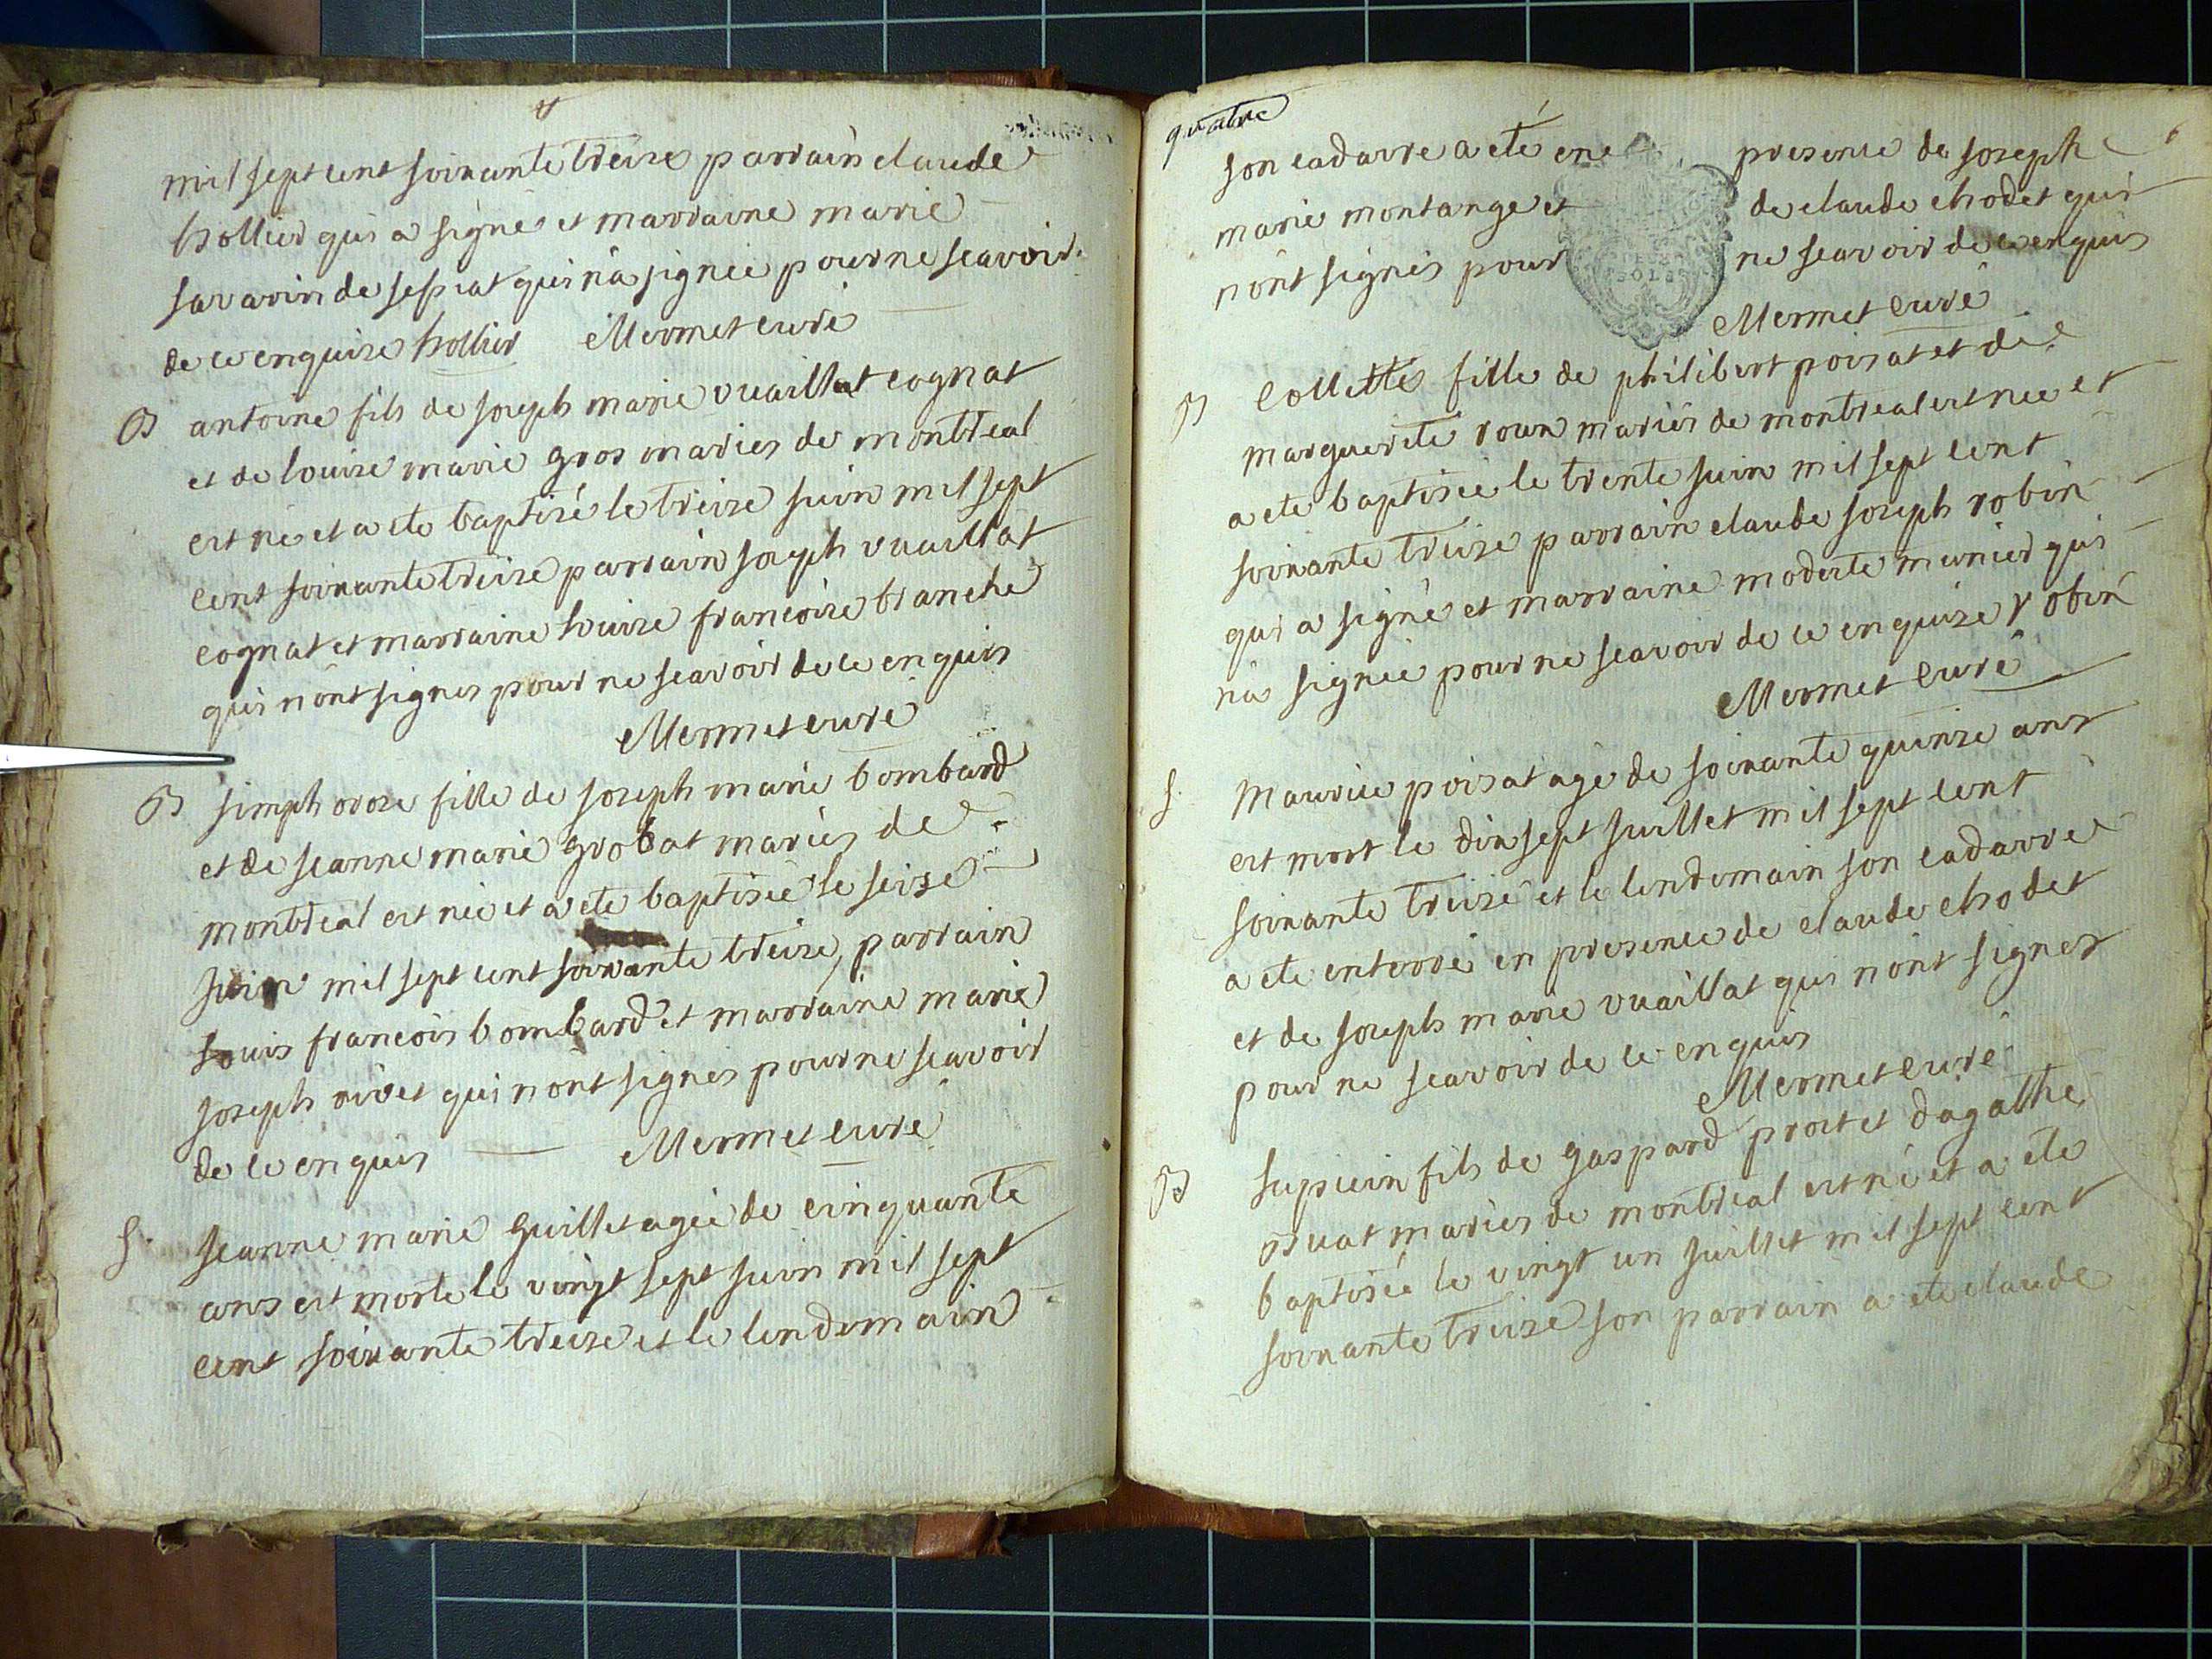 mil sept cent soixante treize parrain claude
hollier qui a signé et marraine marie
savarin de sessiat qui n'a signée pour ne scavoir
de ce enquise hollier Mermet curé
B antoine fils de joseph marie vuaillat cognat
et de louise marie gros mariés de montreal
est né et a ete baptisé le treize juin mil sept
cent soixante treize parrain joseph vuaillat
cognat et marraine louise francoise branche
qui n'ont signes pour ne scavoir de ce enquis
Mermet curé
B simphorose fille de joseph marie bombard
et de jeanne marie grobat mariés de
montreal est née et a ete baptisée le seize
juin mil sept cent soixante treize, parrain
louis francois bombard et marraine marie
joseph rivet qui n'ont signés pour ne scavoir
de ce enquis Mermet curé
S. jeanne marie guillet agée de cinquante
ans est morte le vingt sept juin mil sept
cent soixante treize et le lendemain
quatre
6
son cadavre a été en presence de joseph
marie montange et de claude chodet qui
n'ont signés pour ne scavoir de ce enquis
Mermet curé
B Collette fille de philibert poisat et de
marguerite roux mariés de montreal est née et
a ete baptisée le trente juin mil sept cent
soixante treize parrain claude joseph robin
qui a signé et marraine modeste munier qui
n'a signée pour ne scavoir de ce enquise robin
Mermet curé
S. Maurice poisat agé de soixante quinze ans
est mort le dix sept juillet mil sept cent
soixante treize et le lendemain son cadavre
a ete enterré en presence de claude chodet
et de joseph marie vuaillat qui n'ont signes
pour ne scavoir de ce enquis
Mermet curé
B supicin fils de gaspard prost et d'agathe
mariés de montreal est né et a ete
baptisée le vingt un juillet mil sept cent
soixante treize son parrain a ete claude